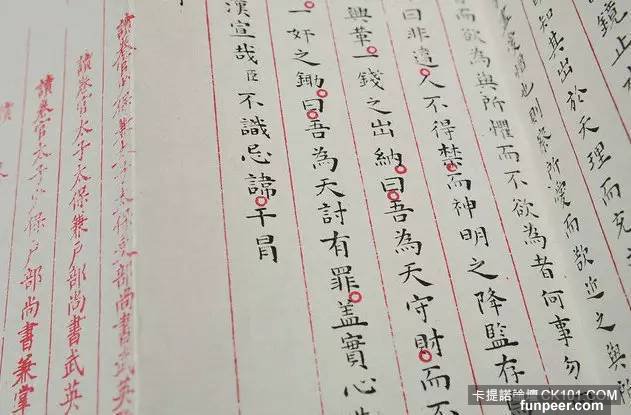 鏡止
知其出於天理而充
則察所愛而欲近之與
而欲為與所懼而不欲為者何事勿
曰非違人不得禁而神明之降監存
興革一錢之出納曰吾為天守財而不
一奸之鋤曰吾為天討有罪蓋實心
漠宣哉臣不識忌諱干冒
讀卷官太子太保吏部尚書武英
讀卷官太子太保兼戶部尚書武英
讀卷官太子少保戶部尚書兼掌
讀
卡提諾論壇 CK101.COM
funpeer.com